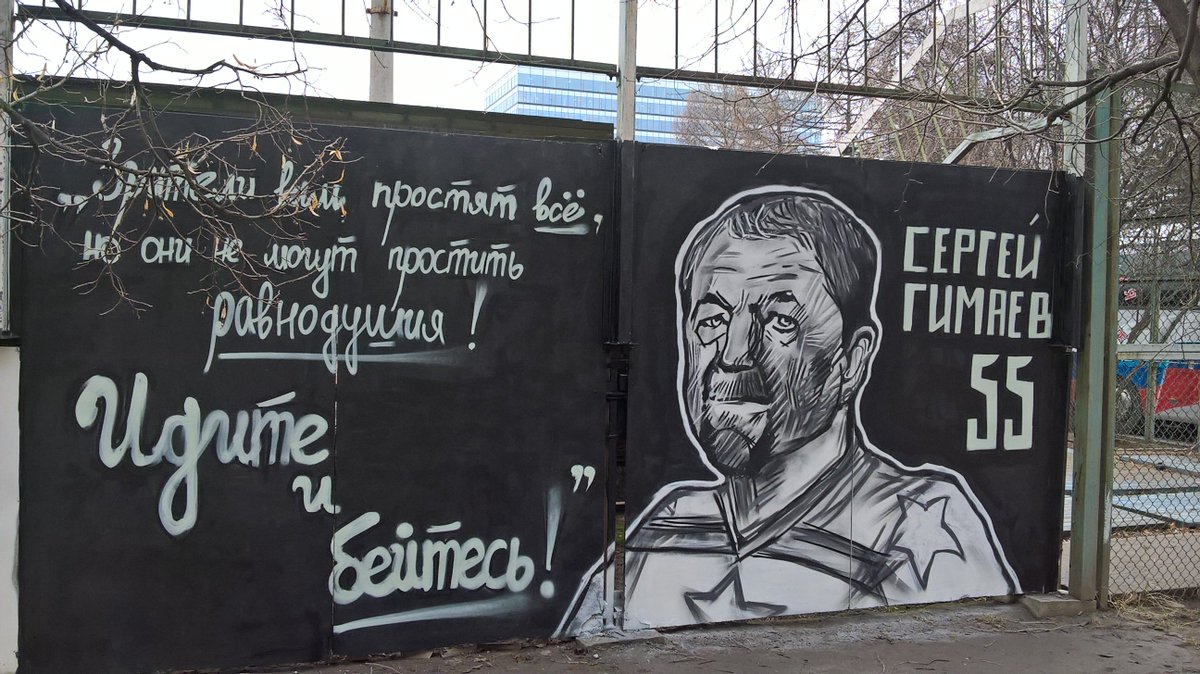 „Зрители вам простят всё,
но они не могут простить
равнодушия!
Идите
и
бейтесь!”
СЕРГЕЙ
ГИМАЕВ
55